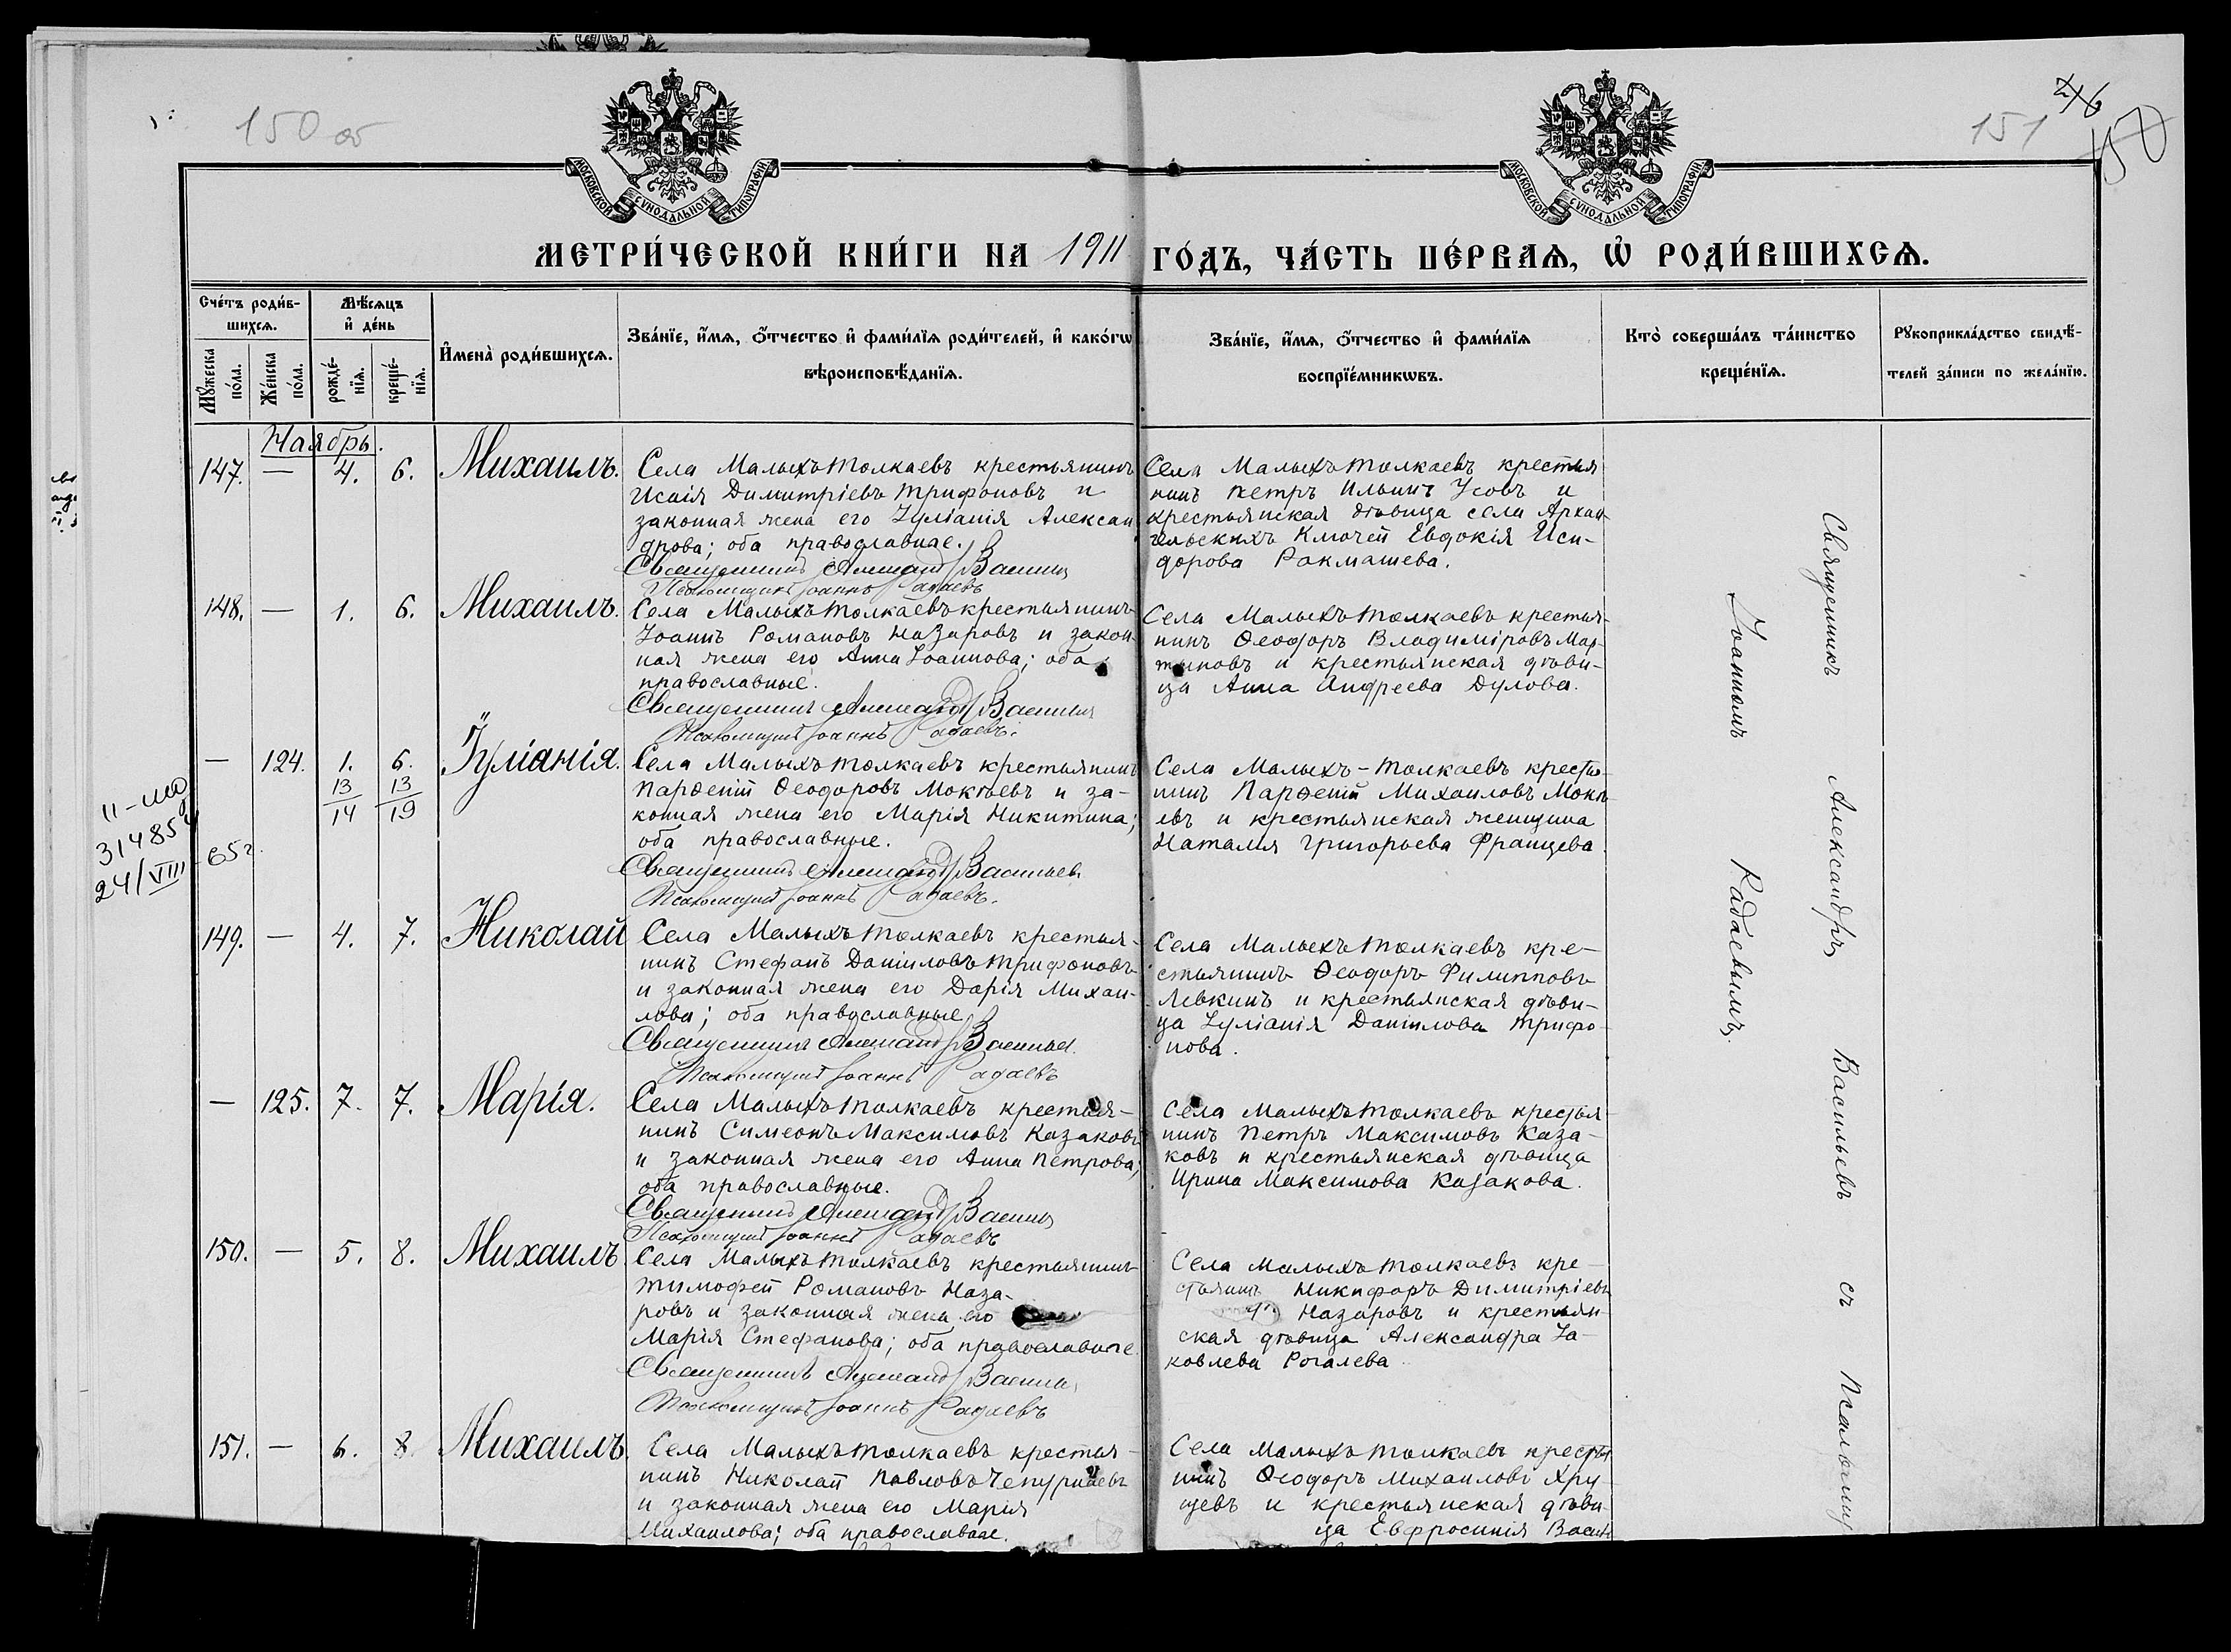 150 об
151
МОСКОВСКОЙ СѴНОДАЛЬНОЙ ТИПОГРАФІИ.
МОСКОВСКОЙ СѴНОДАЛЬНОЙ ТИПОГРАФІИ.
МЕТРИ́ЧЕСКОЙ КНИ́ГИ НА 1911 ГО́ДЪ, ЧА́СТЬ ПЕ́РВАѦ, Ѽ РОДИ́ВШИХСѦ.
Сче́тъ роди́в-
шихсѧ.
Мꙋ́жеска по́ла.
Же́нска по́ла.
Мѣ́сѧцъ
и҆ де́нь
рожде́-
нїѧ.
креще́-
нїѧ.
И҆мена̀ роди́вшихсѧ.
Зва́нїе, и҆́мѧ, ѻ҆́тчество и҆ фами́лїѧ роди́телей, и҆ како́гѡ
вѣроисповѣ́данїѧ.
Зва́нїе, и҆́мѧ, ѻ҆́тчество и҆ фами́лїѧ
воспрїе́мникѡвъ.
Кто̀ соверша́лъ та́инство
креще́нїѧ.
Рꙋкоприкла́дство свидѣ́-
телей за́писи по жела́нїю.
Ноябрь.
147. — 4. 6. Михаилъ.
Села Малыхъ Толкаевъ крестьянинъ
Исаія Димитріевъ Трифоновъ и
законная жена его Іуліанія Алексан
дрова; оба православные.
Священникъ Александръ Васильев
Псаломщикъ Іоаннъ Радаевъ
Села Малыхъ Толкаевъ крестья
нинъ Петръ Ильинъ Усовъ и
крестьянская дѣвица села Архан
гельскихъ Ключей Евдокія Иси-
дорова Ракмашева.
148. — 1. 6. Михаилъ.
Села Малыхъ Толкаевъ крестьянинъ
Іоаннъ Романовъ Назаровъ и закон-
ная жена его Анна Іоаннова; оба
православные.
Священникъ Александръ Васильев
Псаломщикъ Іоаннъ Радаевъ.
Села Малыхъ Толкаевъ крестья-
нинъ Ѳеодоръ Владиміровъ Мар-
тыновъ и крестьянская дѣви-
ца Анна Андреева Дулова.
— 124. 1. 6. Іуліанія.
13 13
14 19
II-
31485
24/VIII-65г.
Села Малыхъ Толкаевъ крестьянинъ
Парѳеній Ѳеодоровъ Мокѣевъ и за-
конная жена его Марія Никитина;
оба православные.
Священникъ Александръ Васильев
Псаломщикъ Іоаннъ Радаевъ.
Села Малыхъ-Толкаевъ кресть-
нинъ Парѳеній Михаиловъ Мокѣ
евъ и крестьянская женщина
Наталія Григорьева Францева.
149. — 4. 7. Николай
Села Малыхъ Толкаевъ крестья-
нинъ Стефанъ Даніиловъ Трифоновъ
и законная жена его Дарія Михаи-
лова; оба православные
Священникъ Александръ Васильев.
Псаломщикъ Іоаннъ Радаевъ
Села Малыхъ Толкаевъ кре-
стьянинъ Ѳеодоръ Филипповъ
Левкинъ и крестьянская дѣви-
ца Іуліанія Даніилова Трифо-
нова.
— 125. 7. 7. Марія.
Села Малыхъ Толкаевъ крестья-
нинъ Симеонъ Максимовъ Казаковъ
и законная жена его Анна Петрова;
оба православные.
Священникъ Александръ Васильев
Псаломщикъ Іоаннъ Радаевъ
Села Малыхъ Толкаевъ крестья
нинъ Петръ Максимовъ Каза-
ковъ и крестьянская дѣвица
Ирина Максимова Казакова.
150. — 5. 8. Михаилъ
Села Малыхъ Толкаевъ крестьянинъ
Тимофей Романовъ Наза-
ровъ и законная жена его
Марія Стефанова; оба православные
Священникъ Александръ Васильев
Псаломщикъ Іоаннъ Радаевъ
Села Малыхъ Толкаевъ кре-
стьянинъ Никифоръ Димитріевъ
Назаровъ и крестьян-
ская дѣвица Александра Іа-
ковлева Рогалева.
151. — 6. 8. Михаилъ.
Села Малыхъ Толкаевъ крестья-
нинъ Николай Павловъ Чепурнаевъ
и законная жена его Марія
Михаилова; оба православные.
Села Малыхъ Толкаевъ крестья
нинъ Ѳеодоръ Михаиловъ Хру-
щевъ и крестьянская дѣви-
ца Евфросинія Васил
Священникъ Александръ Васильевъ съ Псаломщ
Іоанномъ Радаевымъ.